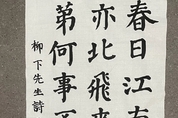 春日江
亦北飛
弟何事
柳下先生詩